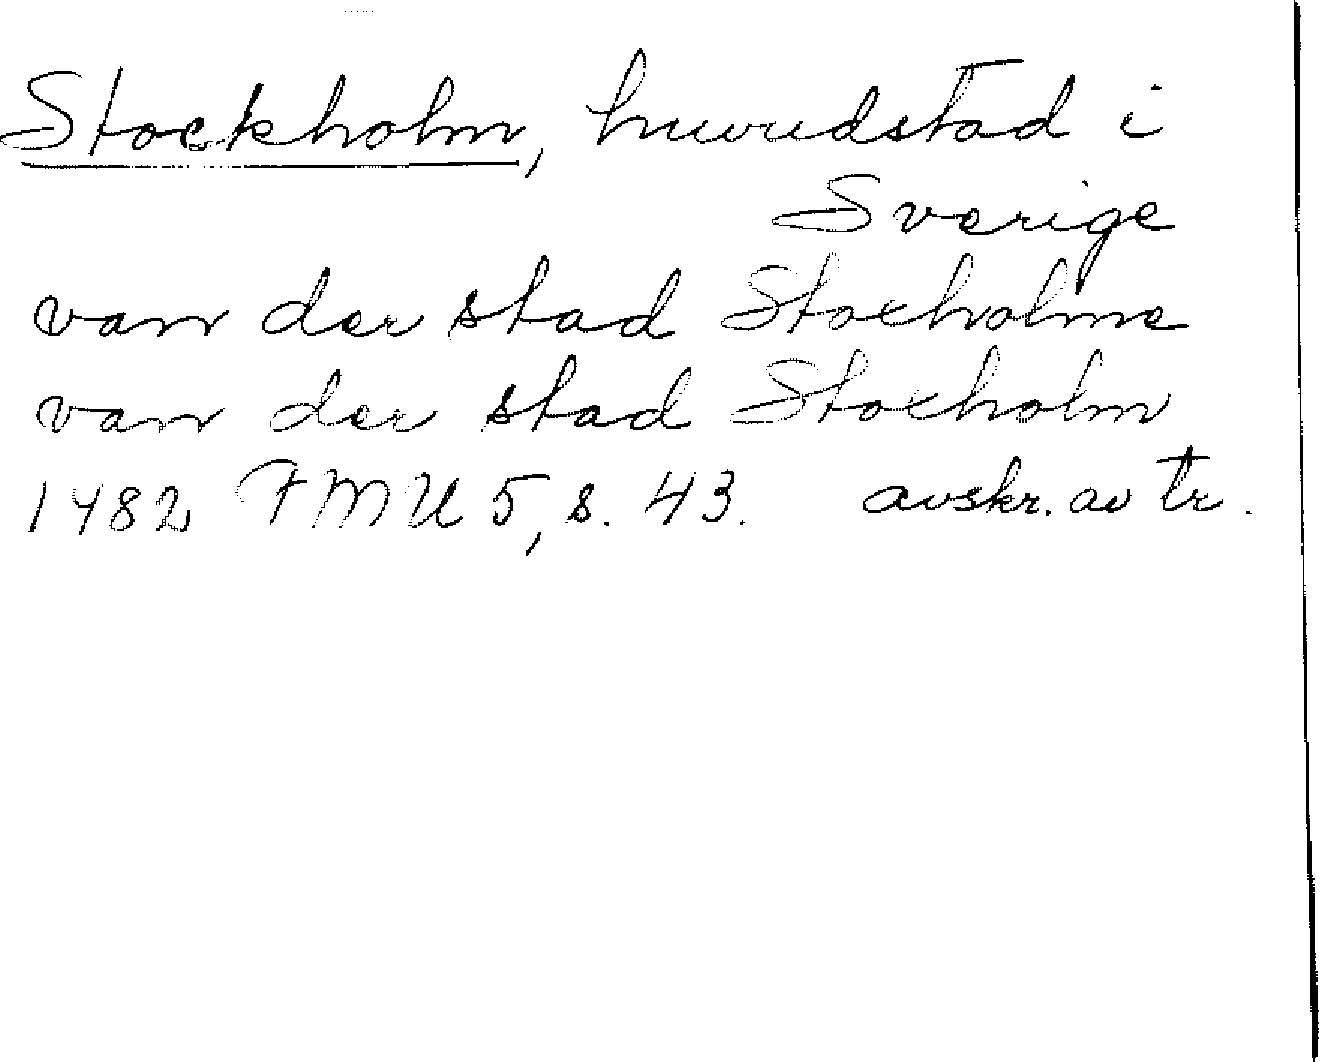 Stockholm, huvudstad i
Sverige
van der stad Stocholme
van der stad Stocholm
1482 FMU 5, s. 43. avskr. av tr.